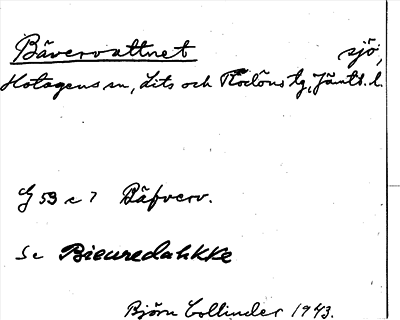 Bävervattnet sjö,
Hotagens sn, Lits och Rödöns tg, Jämtl. l.
G 53 c 7 Bäfverv.
Se Bieuredahkke
Björn Collinder 1943.